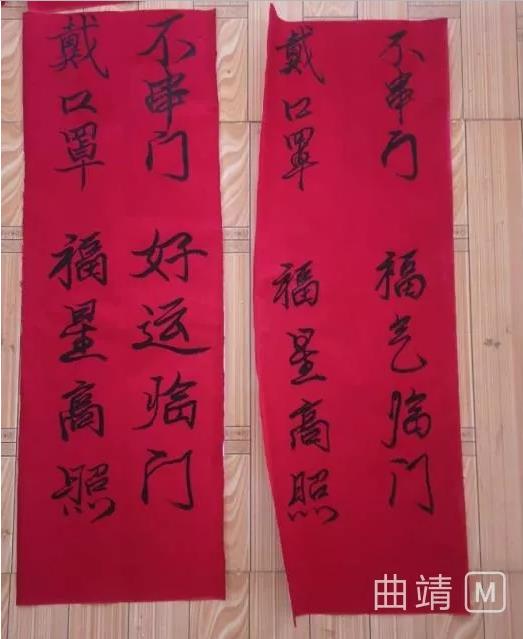 不串门 好运临门
戴口罩 福星高照
不串门 福气临门
戴口罩 福星高照
曲靖M